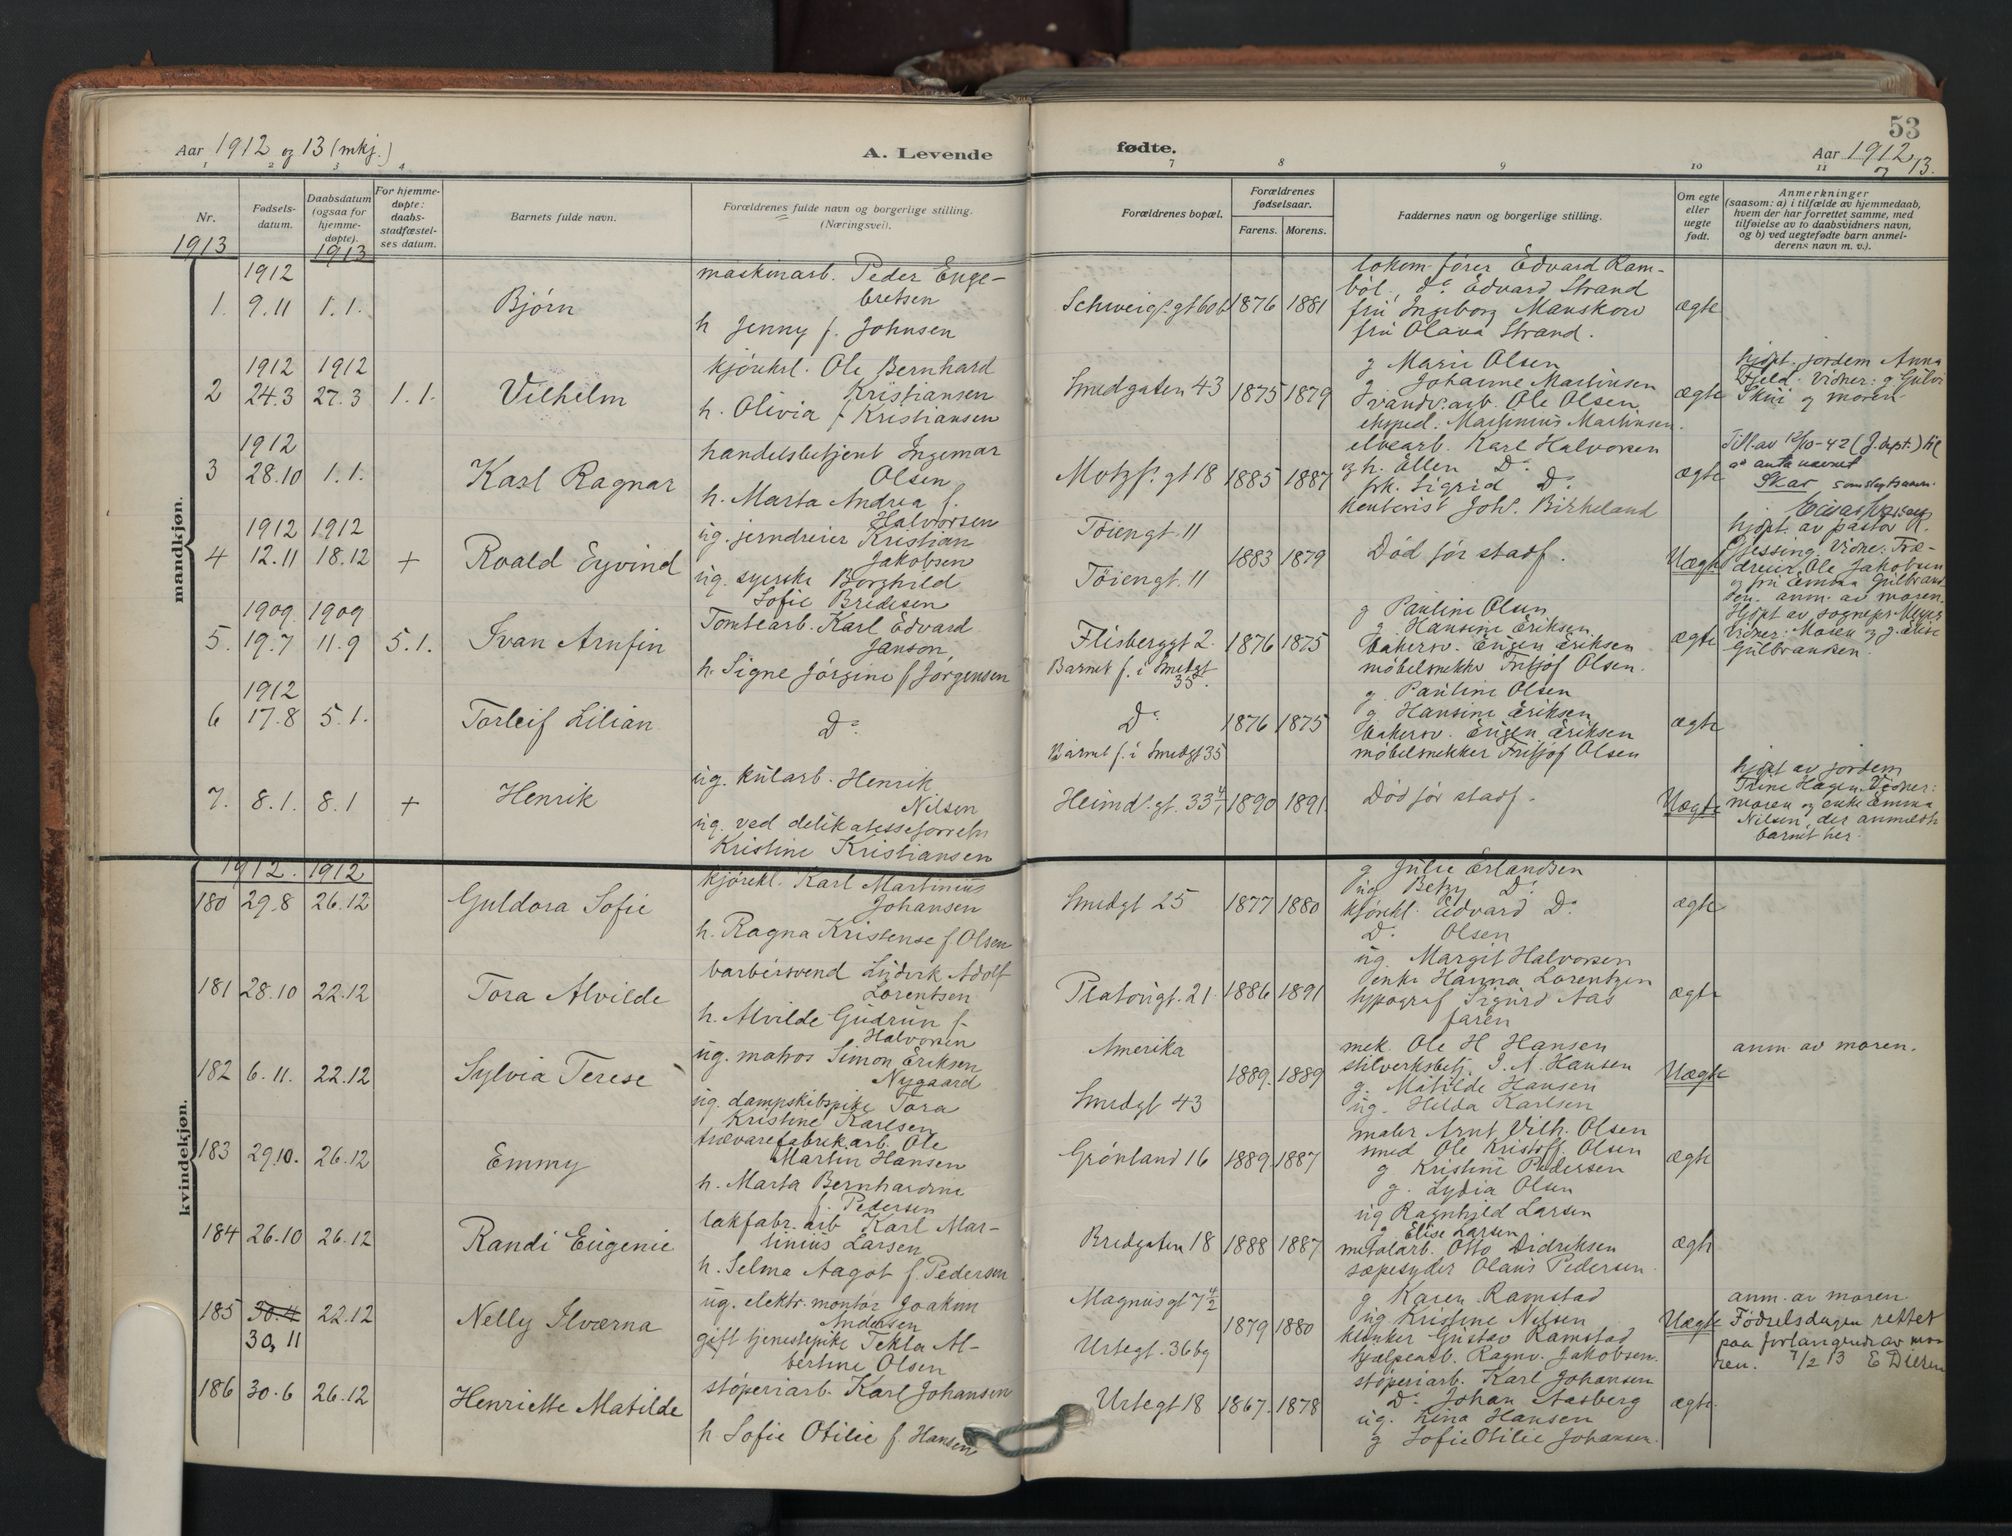 53
Aar 1912 og 13 (mkj.)
A. Levende
fødte.
Aar 1912 og 13.
1 2 3 4
7 8 9 10 11
Nr.
Fødsels-
datum.
Daabsdatum
(ogsaa for
hjemme-
døpte).
For hjemme-
døpte:
daabs-
stadfæstel-
ses datum.
Barnets fulde navn.
Forældrenes fulde navn og borgerlige stilling.
(Næringsvei).
Forældrenes bopæl.
Forældrenes
fødselsaar.
Farens. Morens.
Faddernes navn og borgerlige stilling.
Om egte
eller
uegte
født.
Anmerkninger
(saasom: a) i tilfælde av hjemmedaab,
hvem der har forrettet samme, med
tilføielse av to daabsvidners navn,
og b) ved uegtefødte barn anmel-
derens navn m. v.).
1913
1913
mandkjøn.
1912
1. 9.11 1.1.
Bjørn
maskinarb. Peder Enge-
bretsen
h Jenny f. Johnsen
Schweigs. gt 60b
1876 1881
lokom. fører Edvard Ram-
böl, Do Edvard Strand
fru Ingeborg Manskow
fru Olava Strand.
ægte
1912 1912
2 24.3 27.3 1.1.
Vilhelm
kjørekrl. Ole Bernhard
Kristiansen
h. Olivia f Kristiansen
Smedgaten 43
1875 1879
g Marie Olsen
g Johanne Martinsen
vandv. arb. Ole Olsen
eksped. Martinius Martinsen.
ægte
hjdpt. jordem Anna
Fjeld. Vidner: g Gulvi
Skui og moren
1912
3 28.10 1.1.
Karl Ragnar
handelsbetjent Ingemar
Olsen
h. Marta Andrea f.
Halvorsen
Motzf. gt 18
1885 1887
elvearb. Karl Halvorsen
og h. Ellen Do
frk. Sigrid Do
kontorist Joh. Birkeland
ægte
Till. av 12/10-42 (J. dept.) til
at anta navnet
Skar som slegtsnavn.
1912 1912
4 12.11 18.12 +
Roald Eyvind
ug. jerndreier Kristian
Jakobsen
ug. syerske Borghild
Sofie Bredesen
Tøiengt. 11
Tøiengt. 11
1883 1879
Død før stadf.
Uægte
hjdpt. av pastor R.
Gjessing. Vidner: Træ-
dreier Ole Jakobsen
og fru Emma Gulbrand
sen. anm. av moren.
1909 1909
5. 19.7 11.9 5.1.
Ivan Arnfin
Tomtearb. Karl Edvard
Janson
h. Signe Jørgine f Jørgensen
Flisberggt 2.
Barnet f. i Smedgt
35.
1876 1875
g Pauline Olsen
g. Hansine Eriksen
bakersv. Eugen Eriksen
møbelsnekker Fritjof Olsen.
ægte
Hjdpt av sognepr Meyer
Vidner: Moren og g. Elise
Gulbrandsen.
1912
6 17.8 5.1.
Torleif Lilian
Do
Do
Barnet f. i Smedgt 35
1876 1875
g. Pauline Olsen
g. Hansine Eriksen
bakersv. Eugen Eriksen
møbelsnekker Fritjof Olsen
ægte
7. 8.1. 8.1 +
Henrik
ug. kularb. Henrik
Nilsen
ug. ved delikatesseforretn
Kristine Kristiansen
Heimd. gt. 33 4/1
1890 1891
Død før stadf.
Uægte
hjdpt av jordem
Trine Hagen. Vidner:
moren og enke Emma
Nilsen, der anmeldte
barnet her.
kvindekjøn.
1912. 1912
180 29.8 26.12
Guldora Sofie
kjørekl. Karl Martinius
Johansen
h. Ragna Kristense f Olsen
Smedgt 25
1877 1880
g Julie Erlandsen
ug Betzy Do
kjørekl. Edvard Do
Do Olsen
ægte
181 28.10 22.12
Tora Alvilde
barbersvend Ludvik Adolf
Lorentsen
h. Alvilde Gudrun f.
Halvorsen
Platousgt. 21
1886 1891
ug. Margit Halvorsen
enke Hanna Lorentzen
typograf Sigurd Aas
faren
ægte
182 6.11. 22.12
Sylvia Terese
ug. matros Simon Eriksen
Nygaard
ug. dampskibspike Tora
Kristine Karlsen
Amerika
Smedgt 43
1889. 1889
mek. Ole H Hansen
stilverksbetj. I. A. Hansen
g. Matilde Hansen
ug. Hilda Karlsen
Uægte
anm. av moren.
183 29.10. 26.12
Emmy
trævarefabrikarb. Ole
Martin Hansen
h. Marta Bernhardine
f. Pedersen
Grønland 16
1889. 1887
maler Arnt Vilh. Olsen
smed Ole Kristoff. Olsen
g Kristine Pedersen
g. Lydia Olsen
ægte
184 26.10 26.12
Randi Eugenie
lakfabr. arb Karl Mar-
tinius Larsen
h. Selma Aagot f. Pedersen
Bredgaten 18
1888 1887
ug Ragnhild Larsen
g Elise Larsen
metalarb. Otto Didriksen
sæpesyder Olaus Pedersen.
ægte
185 30.4 22.12
30.11
Nelly Ilværna
ug. elektr. montør Joakim
Andersen
gift tjenestepike Tekla Al-
bertine Olsen
Magnusgt 7 4/2
Urtegt. 36bg
1879 1880
g Karen Ramstad
ug Kristine Nilsen
klunker Gustav Ramstad
hjælpearb. Ragnv. Jakobsen.
Uægte
anm. av moren.
Fødselsdagen rettet
paa forlangende av mo-
ren. 7/2 13
186 30.6 26.12
Henriette Matilde
støperiarb. Karl Johansen
h. Sofie Otilie f. Hansen
Urtegt 18
1867. 1878
støperiarb. Karl Johansen
Do Johan Aasberg
ug. Lina Hansen
g Sofie Otilie Johansen.
ægte.